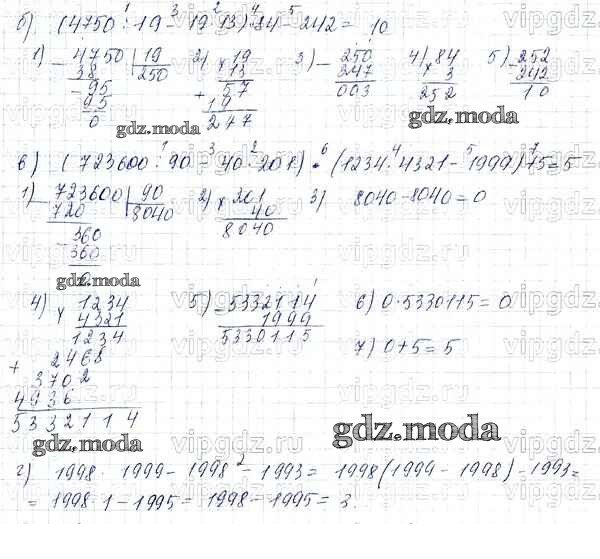 б) (4750 : 19 - 19 · 13) · 84 - 242 = 10
1) 4750 | 19
38 | 250
95
95
0
2) × 19
13
57
+ 19
247
3) - 250
247
003
4) 84
× 3
252
5) - 252
242
10
gdz.moda
в) (723600 : 90 - 40 · 201) · (1234 · 4321 - 1999) + 5 = 5
1) - 723600 | 90
720 | 8040
360
360
0
2) × 201
40
8040
3) 8040 - 8040 = 0
gdz.moda
4) × 1234
4321
1234
+ 2468
3702
4936
5332114
5) - 5332114
1999
5330115
6) 0 · 5330115 = 0
7) 0 + 5 = 5
gdz.moda
gdz.moda
г) 1998 · 1999 - 1998² - 1993 = 1998 (1999 - 1998) - 1993 =
= 1998 · 1 - 1995 = 1998 - 1995 = 3.
vipgdz.ru